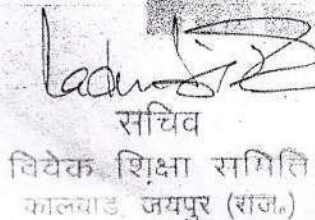 सचिव
विवेक शिक्षा समिति
कालवाड, जयपुर (राज.)